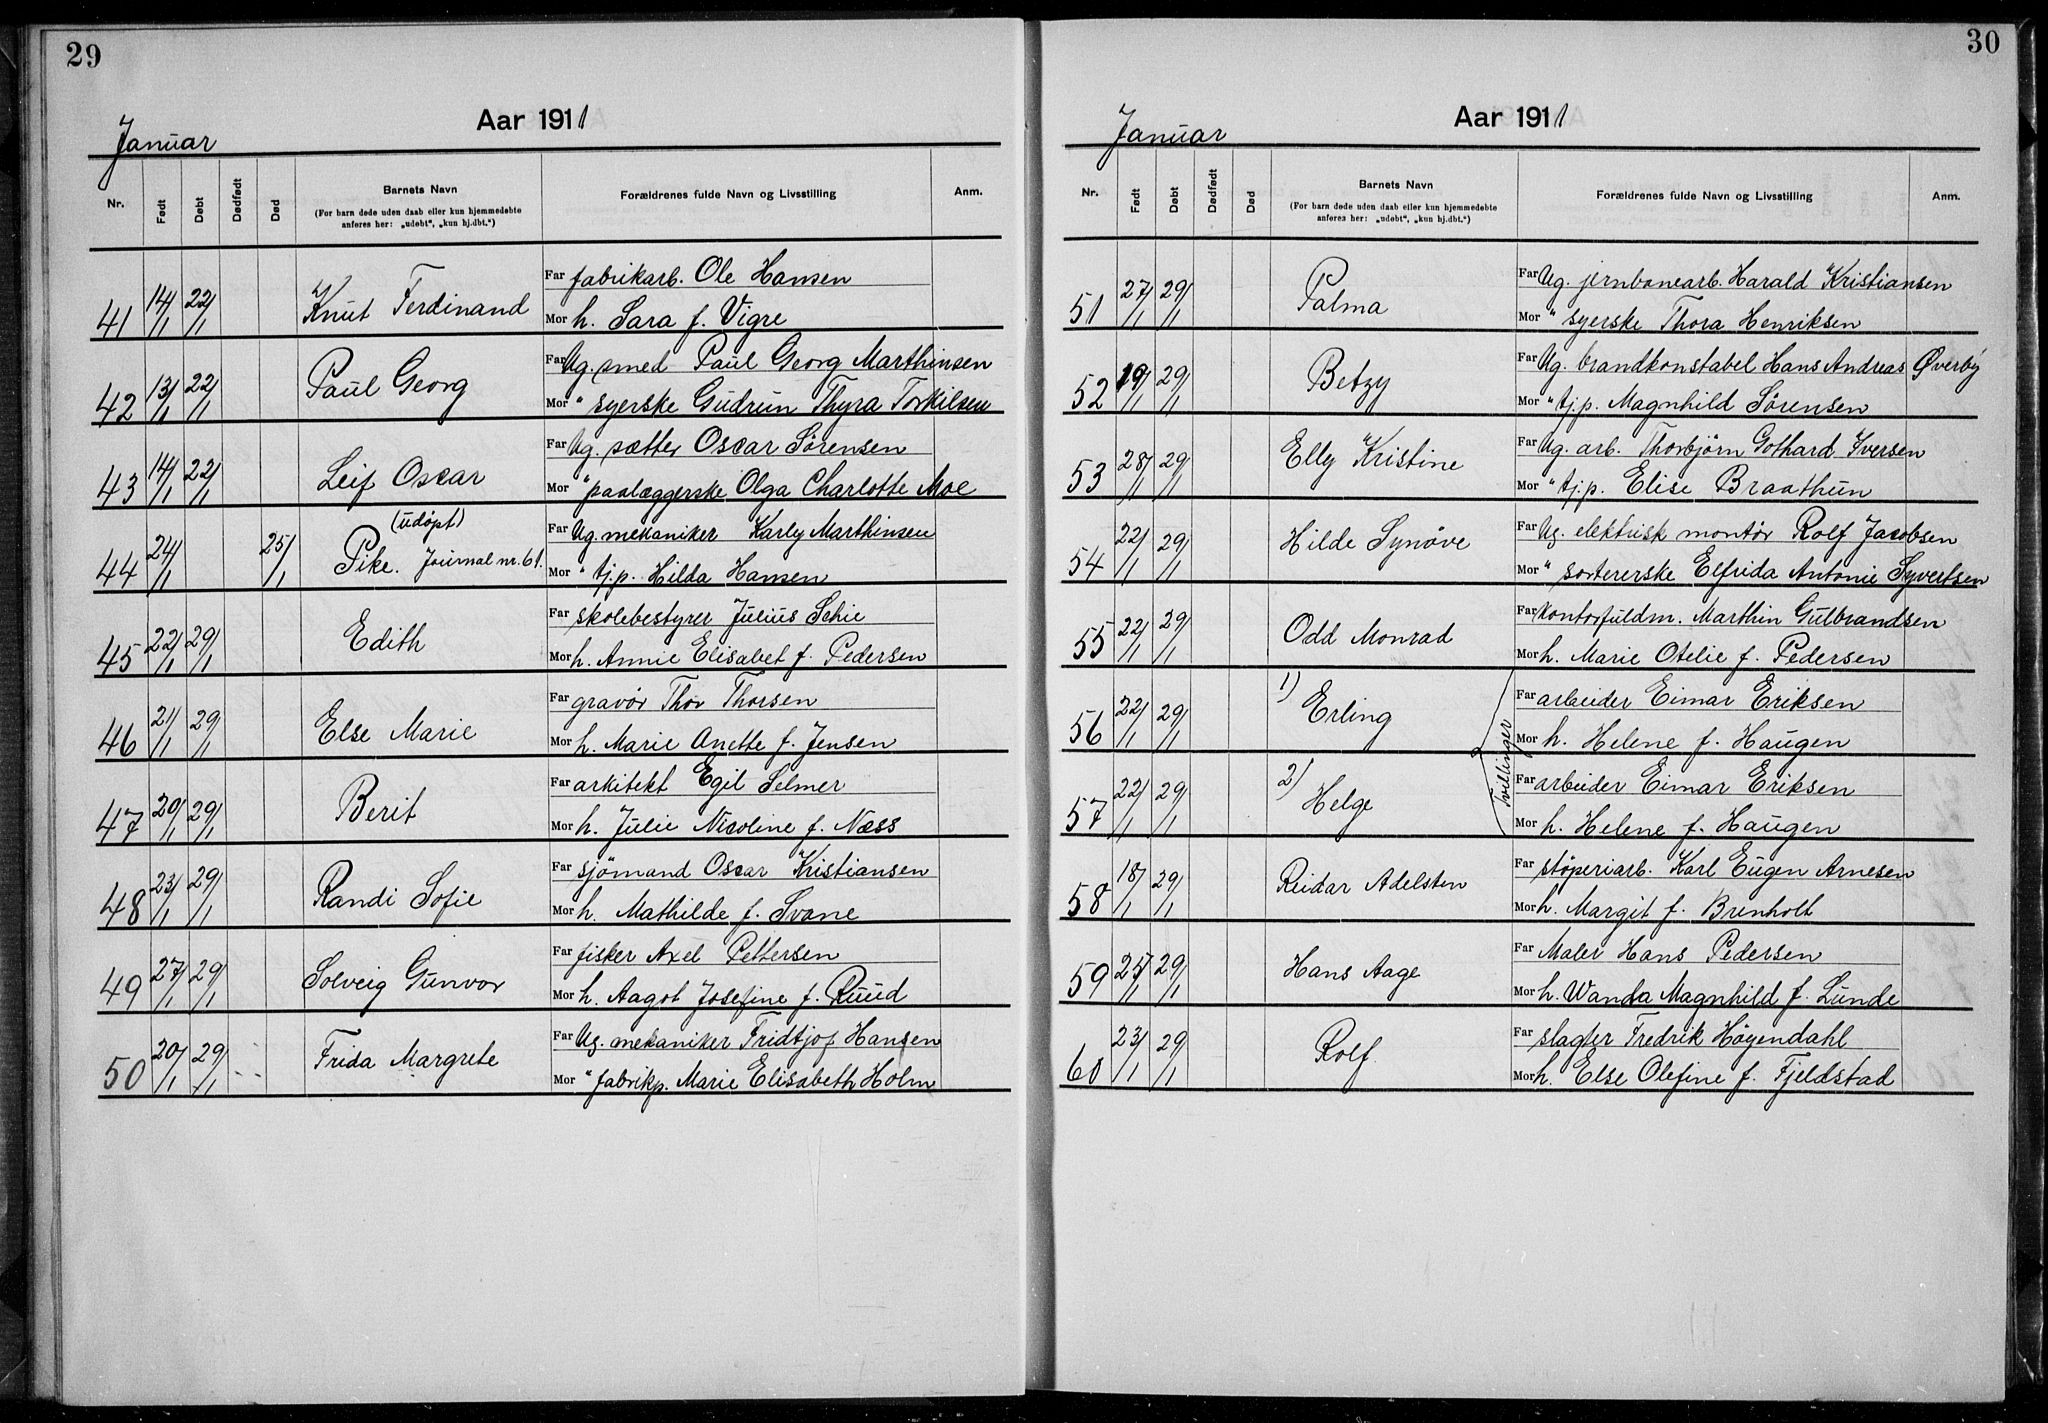 29
Januar
Aar 1911
Nr. Født Døbt Dødfødt Død Barnets Navn Forældrenes fulde Navn og Livsstilling Anm.
(For barn døde uden daab eller kun hjemmedøbte
anføres her: „udøbt“, „kun hj.dbt.“)
Far fabrikarb. Ole Hansen
41 14/1 22/1 Knut Ferdinand
Mor h. Sara f. Vigre
Far Ug. smed Paul Georg Marthinsen
42 13/1 22/1 Paul Georg
Mor " syerske Gudrun Thyra Torkilsen
Far Ug. sætter Oscar Sörensen
43 14/1 22/1 Leif Oscar
Mor " paalæggerske Olga Charlotte Moe
(udöpt)
Far Ug. mekaniker Karly Marthinsen
44 24/1 25/1 Pike. Journal nr. 61.
Mor " tj.p. Hilda Hansen
Far skolebestyrer Julius Schie
45 22/1 29/1 Edith
Mor h. Annie Elisabet f. Pedersen
Far gravör Thor Thorsen
46 21/1 29/1 Else Marie
Mor h. Marie Anette f. Jensen
Far arkitekt Egil Selmer
47 20/1 29/1 Berit
Mor h. Julie Nicoline f. Næss
Far sjömand Oscar Kristiansen
48 23/1 29/1 Randi Sofie
Mor h. Mathilde f. Svane
Far fisker Axel Pettersen
49 27/1 29/1 Solveig Gunvor
Mor h. Aagot Josefine f. Ruud
Far Ug. mekaniker Fridtjof Hansen
50 20/1 29/1 Frida Margrete
Mor " fabrikp. Marie Elisabeth Holm
30
Januar
Aar 1911
Nr. Født Døbt Dødfødt Død Barnets Navn Forældrenes fulde Navn og Livsstilling Anm.
(For barn døde uden daab eller kun hjemmedøbte
anføres her: „udøbt“, „kun hj.dbt.“)
Far Ug. jernbanearb. Harald Kristiansen
51 27/1 29/1 Palma
Mor " syerske Thora Henriksen
Far Ug. brandkonstabel Hans Andreas Øverby
52 19/1 29/1 Betzy
Mor " tj.p. Magnhild Sörensen
Far Ug. arb. Thorbjörn Gothard Iversen
53 28/1 29/1 Elly Kristine
Mor " tj.p. Elise Braathun
Far Ug. elektrisk montör Rolf Jacobsen
54 22/1 29/1 Hilde Synöve
Mor " sortererske Elfrida Antonie Syvertsen
Far kontorfuldm. Marthin Gulbrandsen
55 22/1 29/1 Odd Monrad
Mor h. Marie Otelie f. Pedersen
Far arbeider Eimar Eriksen
56 22/1 29/1 1) Erling
Mor h. Helene f. Haugen
Tvillinger
Far arbeider Eimar Eriksen
57 22/1 29/1 2) Helge
Mor h. Helene f. Haugen
Far stöperiarb. Karl Eugen Arnesen
58 18/1 29/1 Reidar Adelsten
Mor h. Margit f. Brenholt
Far Maler Hans Pedersen
59 25/1 29/1 Hans Aage
Mor h. Wanda Magnhild f. Lunde
Far slagter Fredrik Höyendahl
60 23/1 29/1 Rolf
Mor h. Else Olefine f. Fjeldstad